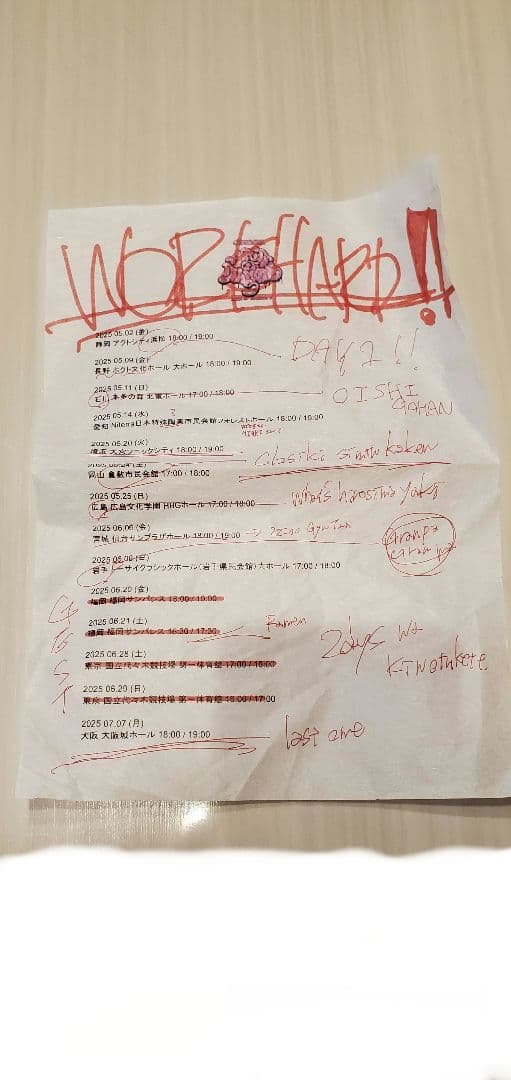 WORK HARD!!
2025 05.02 (金)
静岡 アクトシティ浜松 18:00 / 19:00
DAY 1!!
2025 05.09 (金)
長野 ホクト文化ホール 大ホール 18:00 / 19:00
2025 05.11 (日)
石川 本多の森 北電ホール 17:00 / 18:00
OISHI
GOHAN
2025 05.14 (水)
愛知 Niterra日本特殊陶業市民会館フォレストホール 18:00 / 19:00
?
2025 05.20 (火)
埼玉 大宮ソニックシティ 18:00 / 19:00
2025 05.24 (土)
岡山 倉敷市民会館 17:00 / 18:00
2025 05.25 (日)
広島 広島文化学園 HHGホール 17:00 / 18:00
2025 06.06 (金)
宮城 仙台サンプラザホール 18:00 / 19:00
2025 06.08 (日)
岩手 トーサイクラシックホール(岩手県民会館)大ホール 17:00 / 18:00
2025 06.20 (金)
福岡 福岡サンパレス 18:00 / 19:00
2025 06.21 (土)
福岡 福岡サンパレス 16:30 / 17:30
Ramen
2days wa
kiwotukete
2025 06.28 (土)
東京 国立代々木競技場 第一体育館 17:00 / 18:00
2025 06.29 (日)
東京 国立代々木競技場 第一体育館 16:00 / 17:00
2025 07.07 (月)
大阪 大阪城ホール 18:00 / 19:00
last one